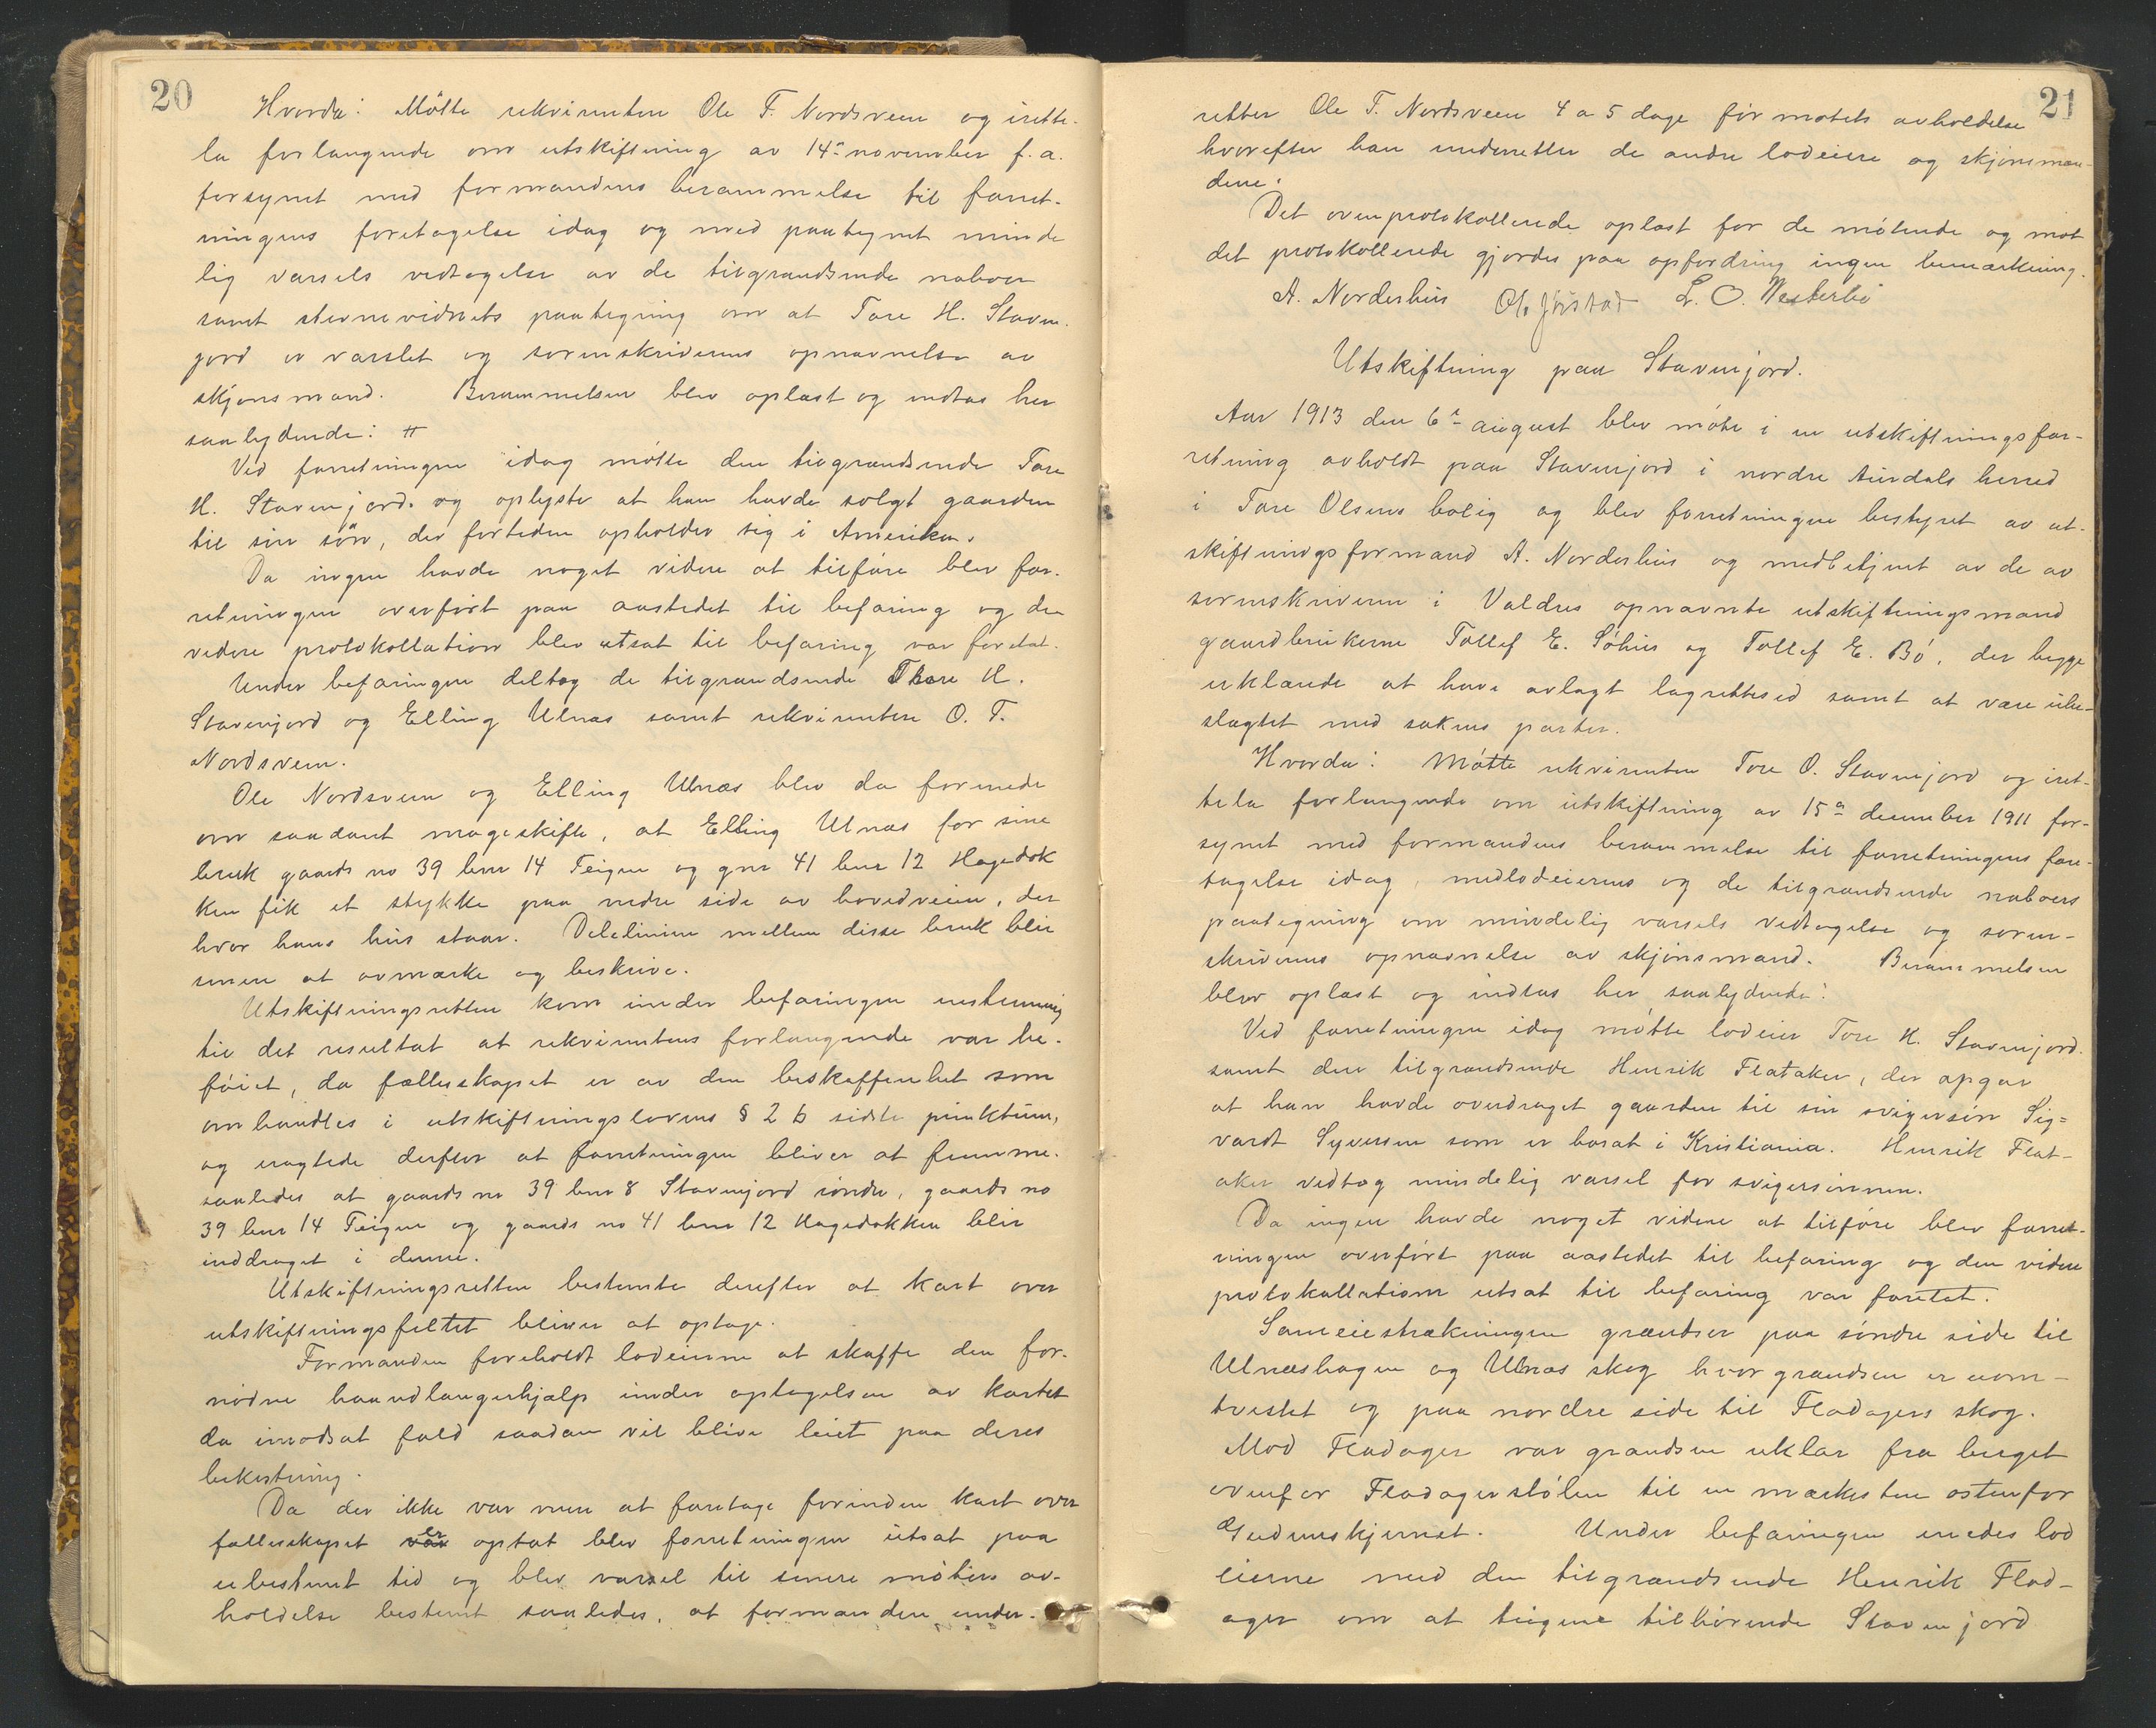 20
Hvorda: Møtte rekvirenten Ole T. Nordsveen og irette-
la forlangende om utskiftning av 14de november f.a.
forsynet med formandens berammelse til forret-
ningens foretagelse idag og med paategnet minde
lig varsels vedtagelse av de tilgrændsende naboer
samt stevnevidnets paategning om at Tore H. Staven-
jord er varslet og sorenskriverens opnævnelse av
skjønsmænd. Berammelsen blev oplæst og indtas her
saalydende: #
Ved forretningen idag møtte den tilgrændsende Tore
H. Stavenjord. og oplyste at han havde solgt gaarden
til sin søn, der fortiden opholder sig i Amerika.
Da ingen havde noget videre at tilføre blev for-
retningen overført paa aastedet til befaring og den
videre protokollation blev utsat til befaring var foretat.
Under befaringen deltog de tilgrændsende Thore H.
Stavenjord og Elling Ulnæs samt rekvirenten O. T.
Nordsveen.
Ole Nordsveen og Elling Ulnæs blev da forenede
om saadant mageskifte, at Elling Ulnæs for sine
bruk gaards no 39 bnr 14 Teigen og gnr 41 bnr 12 Hagedok
ken fik et stykke paa nedre side av hovedveien, der
hvor hans hus staar. Delelinien mellem disse bruk blir
senere at avmerke og beskrive.
Utskiftningsretten kom under befaringen enstemmig
til det resultat at rekvirentens forlangende var be-
føiet, da fælleskapet er av den beskaffenhet som
omhandles i utskiftningslovens § 2 b sidste punktum,
og eragtede derfor at forretningen bliver at fremme.
saaledes at gaards nr 39 bnr 8 Stavenjord søndre, gaards no
39 bnr 14 Teigen og gaards no 41 bnr 12 Hagedokken blir
inddraget i denne.
Utskiftningsretten bestemte derefter at kart over
utskiftningsfeltet bliver at optage.
Formanden foreholdt lodeierne at skaffe den for-
nødne haandlangerhjælp under optagelsen av kartet
da imodsat fald saadan vil blive leiet paa deres
bekostning.
Da der ikke var mere at foretage forinden kart over
fælleskapet er optat blev forretningen utsat paa
ubestemt tid og blev varsel til senere møters av-
holdelse bestemt saaledes, at formanden under-
21
retter Ole T. Nordsveen 4 a 5 dage før møtets avholdelse
hvorefter han underretter de andre lodeiere og skjønsmæn-
dene.
Det ovenprotokollerede oplæst for de møtende og mot
det protokollerede gjordes paa opfordring ingen bemerkning.
A. Norderhus Ole Jøistad L. O. Vesterbø
Utskiftning paa Stavenjord.
Aar 1913 den 6te august blev møte i en utskiftningsfor-
retning avholdt paa Stavenjord i nordre Aurdals herred
i Tore Olsens bolig og blev forretningen bestyret av ut-
skiftningsformand A. Norderhus og medbetjent av de av
sorenskriveren i Valdres opnævnte utskiftningsmænd
gaardbrukerne Tollef E. Søhus og Tollef E. Bø, der begge
erklærede at have avlagt lagrettesed samt at være ube-
slægtet med sakens parter.
Hvorda: Møtte rekvirenten Tore O. Stavenjord og iret-
tela forlangende om utskiftning av 15de december 1911 for-
synet med formandens berammelse til forretningens fore-
tagelse idag, medlodeierens og de tilgrændsende naboers
paategning om mindelig varsels vedtagelse og soren-
skriverens opnævnelse av skjønsmænd. Berammelsen
blev oplæst og indtas her saalydende:
Ved forretningen idag møtte lodeier Tore H. Stavenjord.
samt den tilgrændsende Henrik Flataker, der opgav
at han havde overdraget gaarden til sin svigersøn Sig=
vardt Syversen som er bosat i Kristiania. Henrik Flat-
aker vedtog mindelig varsel for svigersønnen.
Da ingen havde noget videre at tilføre blev forret-
ningen overført paa aastedet til befaring og den videre
protokollation utsat til befaring var foretat.
Sameiestrækningen grændser paa søndre side til
Ulnæshagen og Ulnæs skog hvor grændsen er uom-
tvistet og paa nordre side til Fladagers skog.
Mod Fladager var grændsen uklar fra berget
ovenfor Fladagerstølen til en merkesten østenfor
Under befaringen enedes lod
eierne med den tilgrændsende Henrik Flad-
ager om at teigene tilhørende Stavenjord